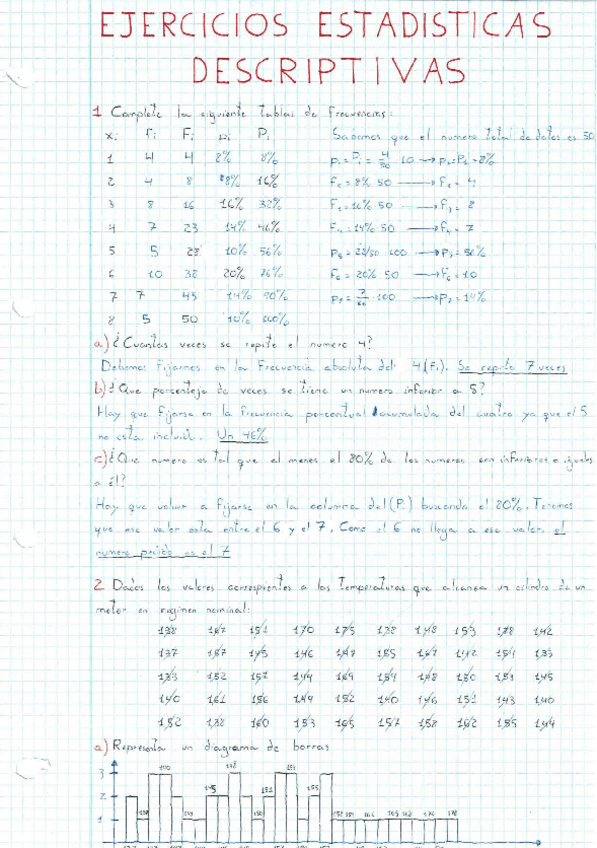 EJERCICIOS ESTADISTICAS
DESCRIPTIVAS
1 Complete la siguiente tablas de frecuencias:
xi fi Fi pi Pi Sabemos que el numero total de datos es 50
1 4 4 8% 8% p1=P1= 4/50 · 100 → p1=P1=8%
2 4 8 8% 16% F2=8%·50 → f2=4
3 8 16 16% 32% F3=16%·50 → f3=8
4 7 23 14% 46% F4=14%·50 → f4=7
5 5 28 10% 56% P5=28/50·100 → P5=56%
6 10 38 20% 76% F6=20%·50 → f6=10
7 7 45 14% 90% p7= 7/50 ·100 → P7=14%
8 5 50 10% 100%
a) ¿Cuantas veces se repite el numero 4?
Debemos fijarnos en la frecuencia absoluta del 4 (Fi). Se repite 7 veces
b) ¿Que porcentaje de veces se tiene un numero inferior a 5?
Hay que fijarse en la frecuencia porcentual acumulada del cuatro ya que el 5
no esta Un 46%
c) ¿Que numero es tal que el menos el 80% de los numeros son inferiores o iguales
a él?
Hay que volver a fijarse en la columna del (Pi) buscando el 80%. Tenemos
que ese valor esta entre el 6 y el 7. Como el 6 no llega a ese valor, el
numero pedido es el 7
2 Dados los valores a las temperaturas que alcanza un cilindro de un
motor en regimen nominal:
138 147 151 170 175 138 148 153 178 142
137 167 145 146 149 155 167 142 154 133
133 152 157 144 169 154 148 130 151 145
140 161 156 149 152 140 146 151 143 140
152 138 160 153 165 157 158 162 155 144
a) Representa un diagrama de barras
3 140 148 151
2 145 152 155
1